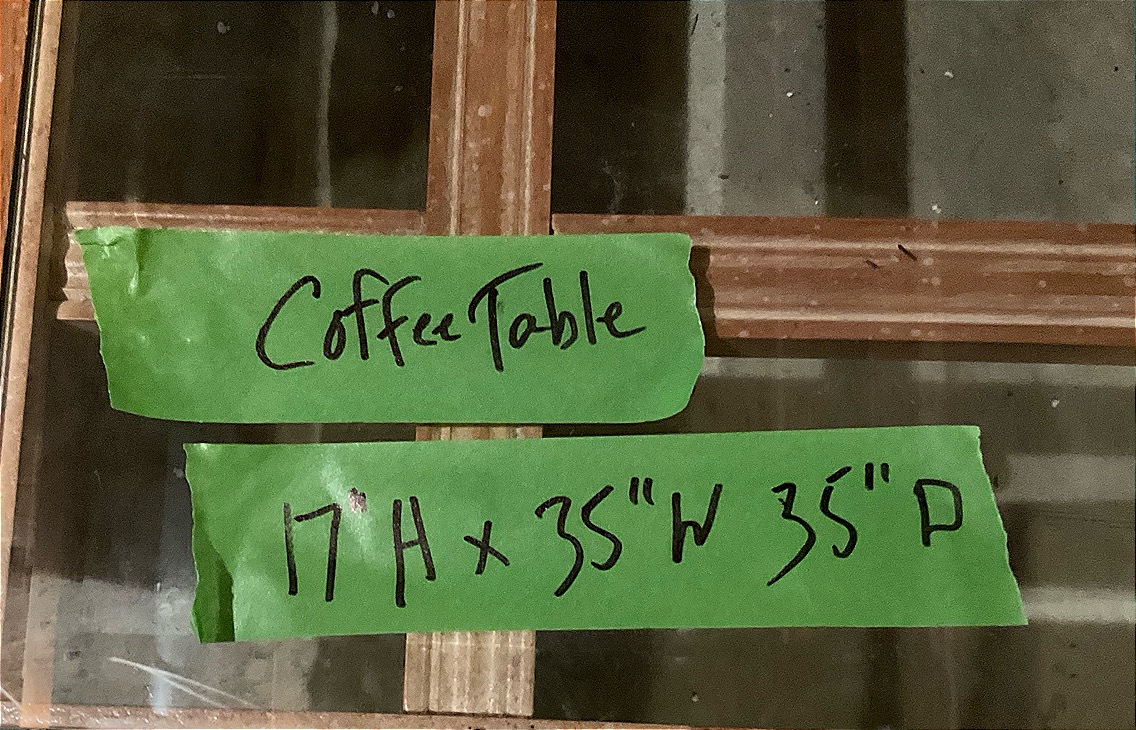 Coffee Table
17" H x 35" W 35" D